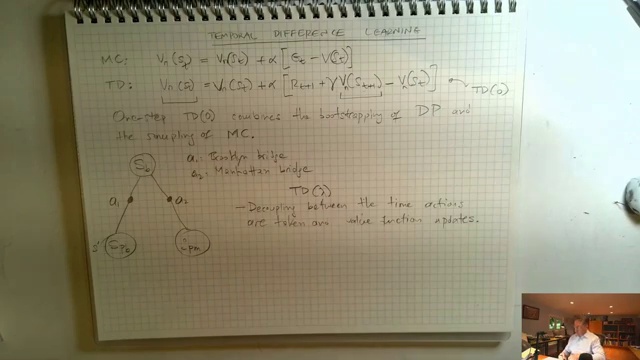 TEMPORAL DIFFERENCE LEARNING
MC: Vπ(St) = Vπ(St) + α [Gt − V(St)]
TD: Vπ(St) = Vπ(St) + α [Rt+1 + γVπ(St+1) − Vπ(St)]
TD(0)
One-step TD(0) combines the bootstrapping of DP and
the sampling of MC.
a1: Brooklyn bridge
a2: Manhattan bridge
TD(λ)
a1 a2
- Decoupling between the time actions
are taken and value function updates.
s'